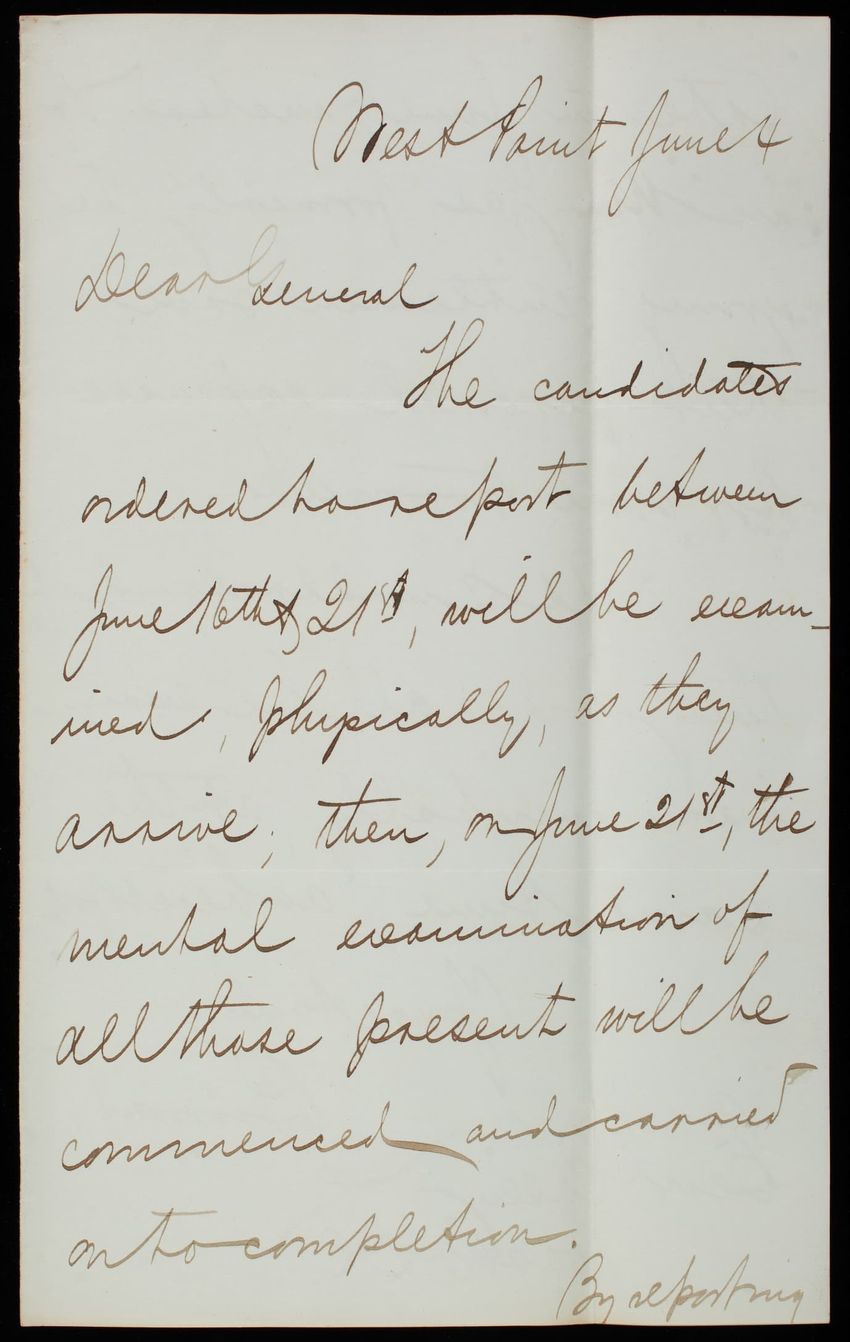 West Point June 4
Dear General
The candidates
ordered to report between
June 16th & 21st, will be exam-
ined, physically, as they
arrive; then, on June 21st, the
mental examination of
all those present will be
commenced and carried
on to completion.
By reporting